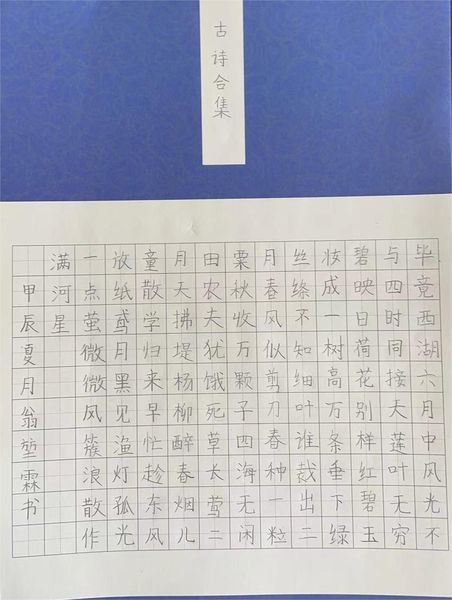 古诗合集
毕竟西湖六月中风光不
与四时同接天莲叶无穷
碧映日荷花别样红碧玉
妆成一树高万条垂下绿
丝绦不知细叶谁裁出二
月春风似剪刀春种一粒
粟秋收万颗子四海无闲
田农夫犹饿死草长莺二
月天拂堤杨柳醉春烟儿
童散学归来早忙趁东风
放纸鸢月黑见渔灯孤光
一点萤微微风簇浪散作
满河星
甲辰夏月翁堃霖书